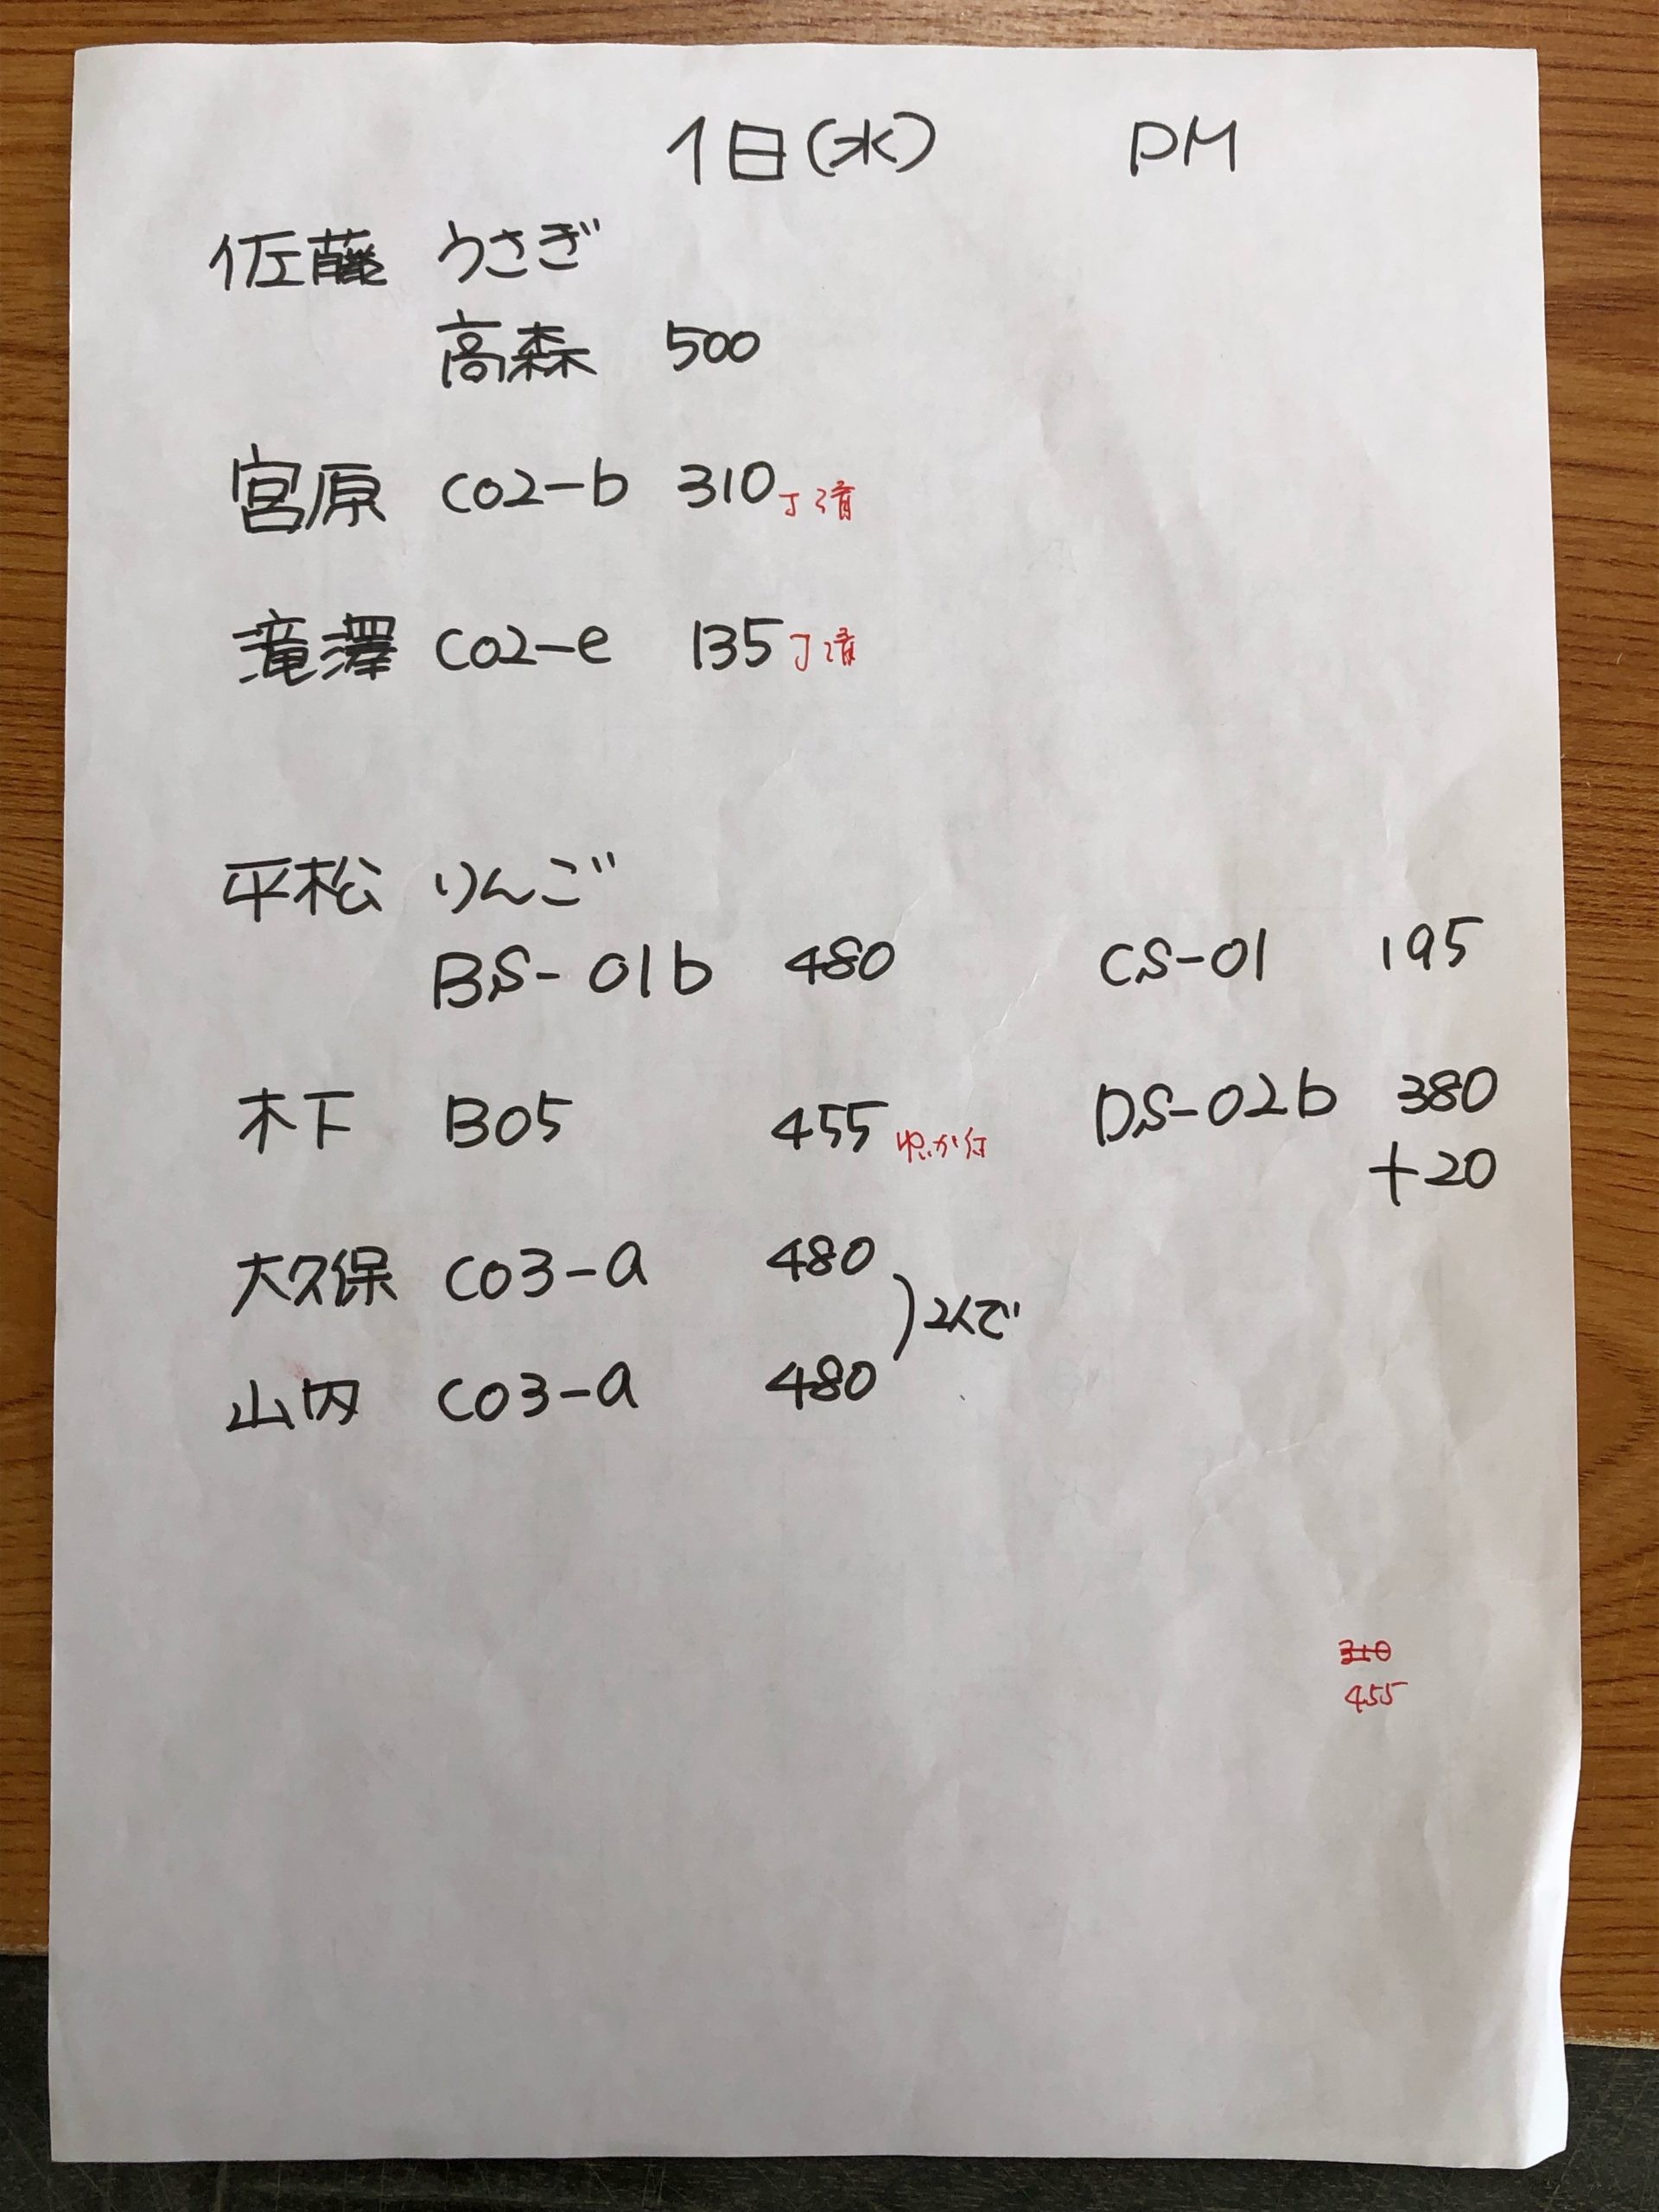 1日(水) PM
佐藤 うさぎ
高森 500
宮原 C02-b 310 丁済
滝澤 C02-e 135 丁済
平松 りんご
BS-01b 480 CS-01 195
木下 B05 455 DS-02b 380
+20
大久保 C03-a 480
2人で
山内 C03-a 480
310
455